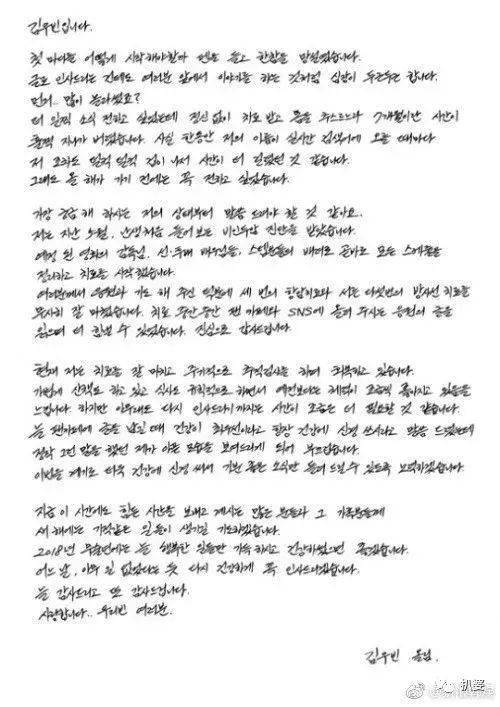 김우빈입니다.
첫 마디를 어떻게 시작해야할까 펜을 들고 한참을 망설였습니다.
글로 인사드리는 건데도 여러분 앞에서 이야기를 하는 것처럼 심장이 두근두근 합니다.
먼저.. 많이 놀라셨죠?
더 일찍 소식 전하고 싶었는데 정신없이 치료 받고 몸을 추스르느라 7개월이란 시간이
훌쩍 지나가 버렸습니다. 사실 한동안 저의 이름이 실시간 검색어에 오를 때마다
저 조차도 덜컥 덜컥 겁이 나서 시간이 더 걸렸던 것 같습니다.
그래도 올 해가 가기 전에는 꼭 전하고 싶었습니다.
가장 궁금해 하시는 저의 상태부터 말씀 드려야 할 것 같아요.
저는 지난 5월, 난생처음 들어보는 비인두암 진단을 받았습니다.
예정 된 영화의 감독님, 선·후배 배우님들, 스텝분들의 배려로 곧바로 모든 스케줄을
정리하고 치료를 시작했습니다.
여러분께서 응원과 기도 해 주신 덕분에 세 번의 항암치료와 서른 다섯번의 방사선 치료를
무사히 잘 마쳤습니다. 치료 중간중간 팬 카페나 SNS에 올려 주시는 응원의 글을
읽으며 더 힘낼 수 있었습니다. 진심으로 감사드립니다.
현재 저는 치료를 잘 마치고 주기적으로 추적검사를 하며 회복하고 있습니다.
가볍게 산책도 하고 있고 식사도 규칙적으로 하면서 예전보다는 체력이 조금씩 좋아지고 있음을
느낍니다. 하지만 아무래도 다시 인사드리기까지는 시간이 조금은 더 필요할 것 같습니다.
늘 팬카페에 글을 남길 때 건강이 최우선이라고 한참 건강에 신경 쓰시라고 말씀 드렸는데
정작 그런 말을 했던 제가 아픈 모습을 보여드리게 되어 부끄럽습니다.
이번을 계기로 더욱 건강에 신경 써서 기분 좋은 소식만 들려 드릴 수 있도록 노력하겠습니다.
지금 이 시간에도 힘든 시간을 보내고 계시는 많은 분들과 그 가족분들께
새해에는 기적같은 일들이 생기길 기도하겠습니다.
2018년 무술년에는 늘 행복한 일들만 가득하시고 건강하셨으면 좋겠습니다.
어느 날, 아무 일 없었다는 듯 다시 건강하게 꼭 인사드리겠습니다.
늘 감사드리고 또 감사드립니다.
사랑합니다.. 우리빈 여러분.
김우빈 올림.
扒婆